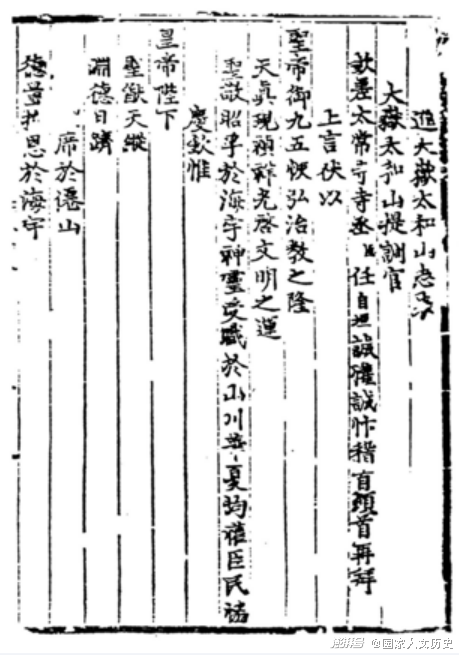 進大嶽太和山志表
大嶽太和山提調官
欽差太常寺寺丞臣任自垣誠懽誠忭稽首頓首再拜
上言伏以
聖帝御九五位弘治教之隆
天真現禎祥光啓文明之運
聖敬昭孚於海宇神靈受職於山川華夏均禧臣民
慶欽惟
皇帝陛下
聖猷天縱
淵德日躋
席於僊山
德量拡恩於海宇
搜狐号@国家人文历史